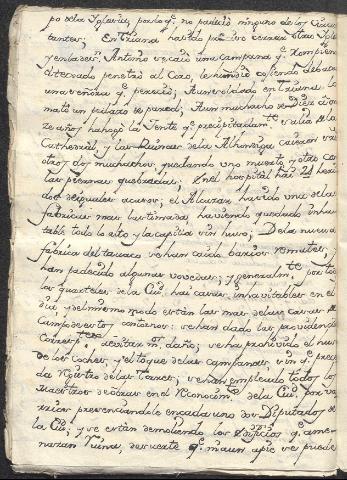 po de la Iglesia, por lo q.e no padeció ninguno de los circuns
tantes; En Triana ha sido preciso cerrar otras Igle
y en la de S.n Antonio se cayó una campana q.e rompiendo
penetró al Coro, le hundió cojiendo debaxo
una señora q.e pereció; Auna soldado en Triana lo
mató un pedazo de pared; Aun muchacho de diez a do
ze años hahogó la Jente q.e precipitadam.te salió de la
Cathedral, y las Ruinas de la Alhondiga caieron en
otros dos muchachos quedando uno muerto y otro con
las piernas quebradas; En el hospital hai 21 heri
dos de iguales acasos; el Alcazar ha sido una de las
fabricas mas lastimada, haviendo quedado inhavi
table todo lo alto y la capilla sin huso; De la nueva
fabrica del tavaco se han caido barios remates,
han padecido algunas vovedas; y generalm.te por todos
los quarteles de la Ciu.d hai casas inhavitables en el
dia, y del mismo modo están las mas de las casas de
Campo desierto, y contorno: se han dado las providencias
Corresp.tes a evitar m.s daño; se ha prohivido el huso
de los coches, y el toque de las campanas sin q.e
da Registro de las Torres; se han empleado todos los
Maestros de obras en el Reconocim.to de la Ciu.d por sus
presenciandole en cada uno dos Diputados de
la Ciu.d y se están demoliendo los Edificios q.e ame
nazan Ruina, de suerte q.e ni aun a pie se puede